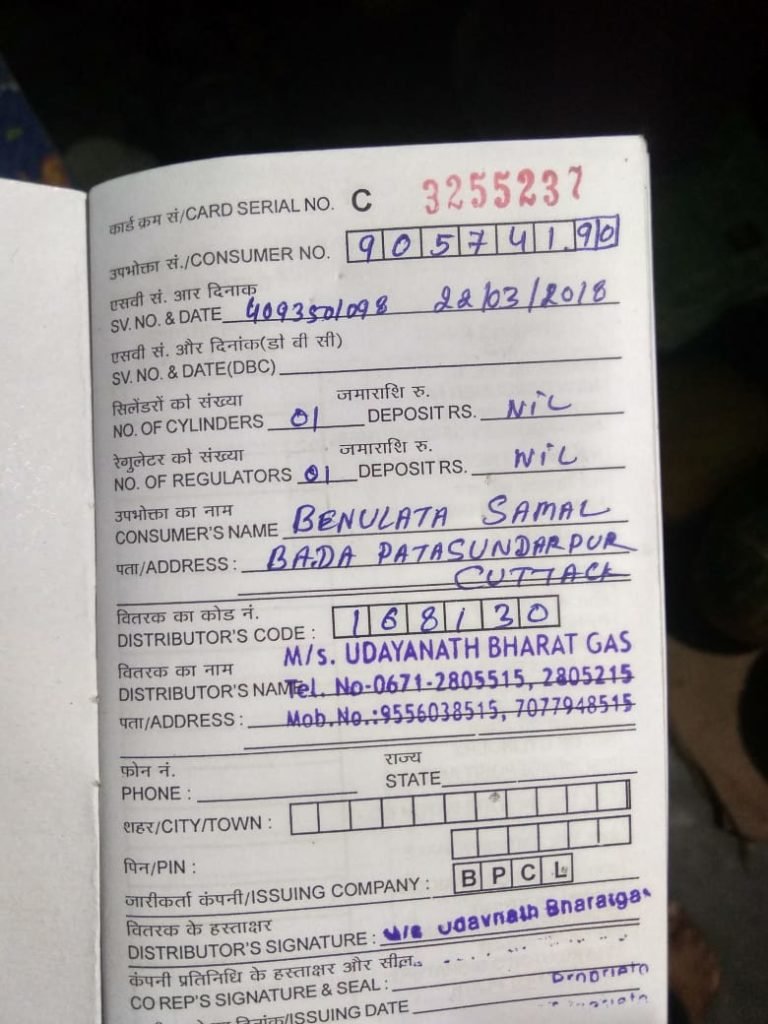 कार्ड क्रम सं/CARD SERIAL NO. C 3255237
उपभोक्ता सं./CONSUMER NO. 90574190
एसवी सं. आर दिनाक
SV. NO. & DATE 4093501098 22/03/2018
एसवी सं. और दिनांक(डी वी सी)
SV. NO. & DATE(DBC)
सिलेंडरों को संख्या जमाराशि रु.
NO. OF CYLINDERS 01 DEPOSIT RS. NiL
रेगुलेटर को संख्या जमाराशि रु.
NO. OF REGULATORS 01 DEPOSIT RS. NiL
उपभोक्ता का नाम
CONSUMER'S NAME BENULATA SAMAL
पता/ADDRESS : BADA PATASUNDARPUR
CUTTACK
वितरक का कोड नं.
DISTRIBUTOR'S CODE : 168130
M/s. UDAYANATH BHARAT GAS
वितरक का नाम
DISTRIBUTOR'S NAME Tel. No-0671-2805515, 2805215
पता/ADDRESS : Mob.No.:9556038515, 7077948515
फोन नं. राज्य
PHONE : STATE
शहर/CITY/TOWN :
पिन/PIN :
जारीकर्ता कंपनी/ISSUING COMPANY : BPCL
वितरक के हस्ताक्षर
DISTRIBUTOR'S SIGNATURE : M/s Udaynath Bharatgas
कंपनी प्रतिनिधि के हस्ताक्षर और सील
CO REP'S SIGNATURE & SEAL :
दिनांक/ISSUING DATE